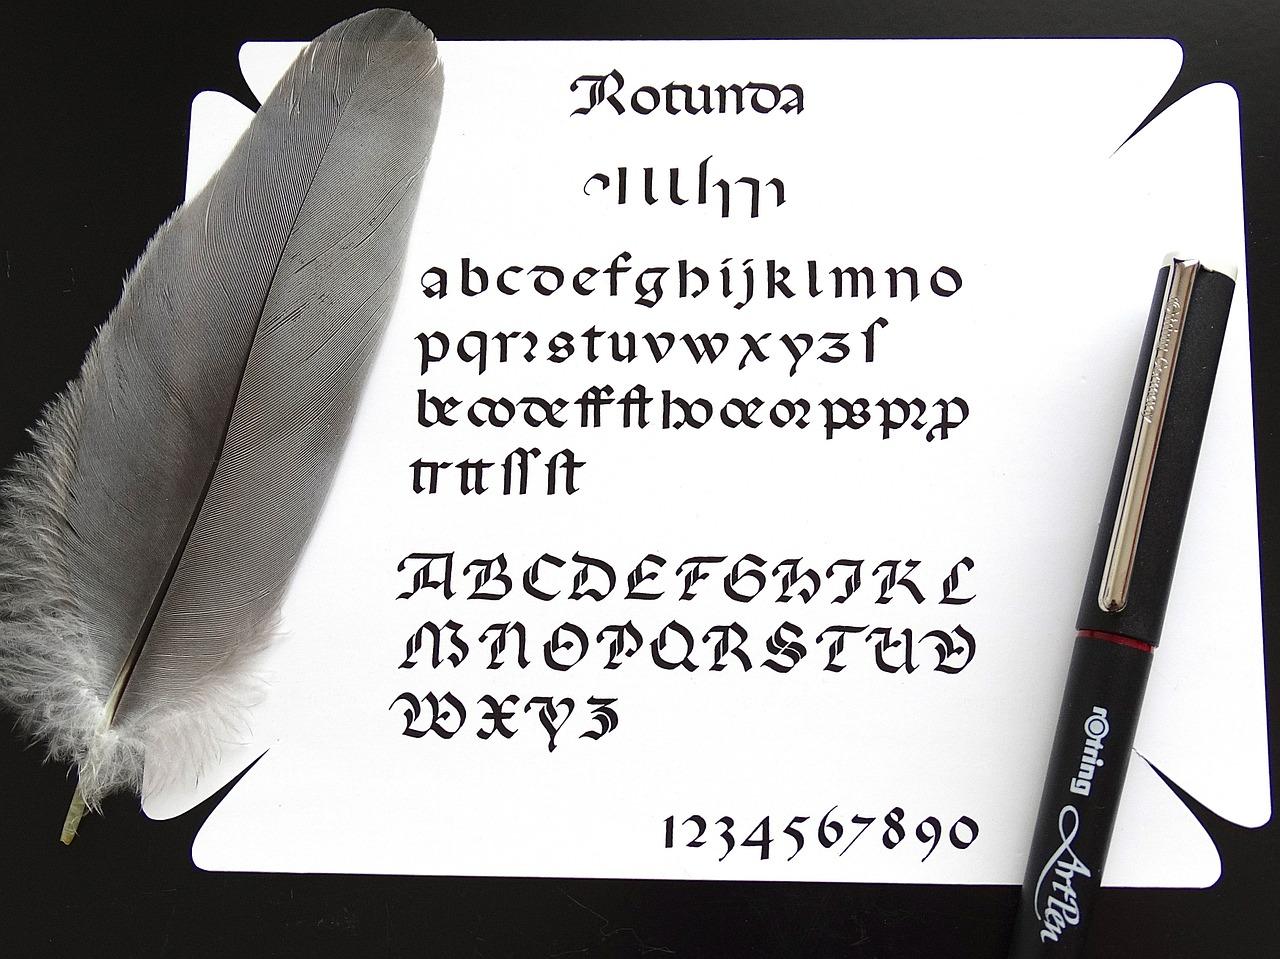 Rotunda
a b c d e f g h i j k l m n o
p q r ꝛ s t u v w x y z ſ
be co de ff ft ho œ oꝛ pp pꝛ p
tr tt ſſ ſt
A B C D E F G H I K L
M N O P Q R S T U V
W X Y Z
1 2 3 4 5 6 7 8 9 0
rOtring ArtPen